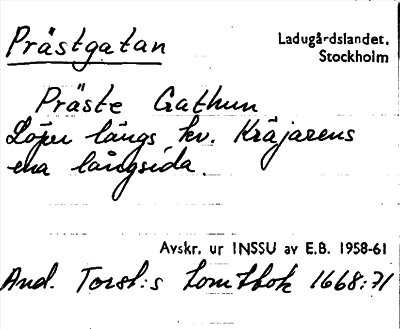 Prästgatan
Ladugårdslandet.
Stockholm
Präste Gathun
Löper längs kv. Kräjarens
ena långsida.
Avskr. ur INSSU av E.B. 1958-61
And. Torst:s tomtbok 1668:71